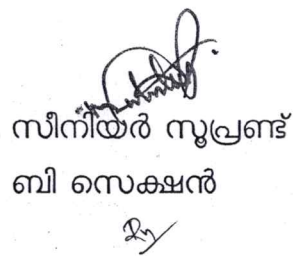 സീനിയർ സൂപ്രണ്ട്
ബി സെക്ഷൻ